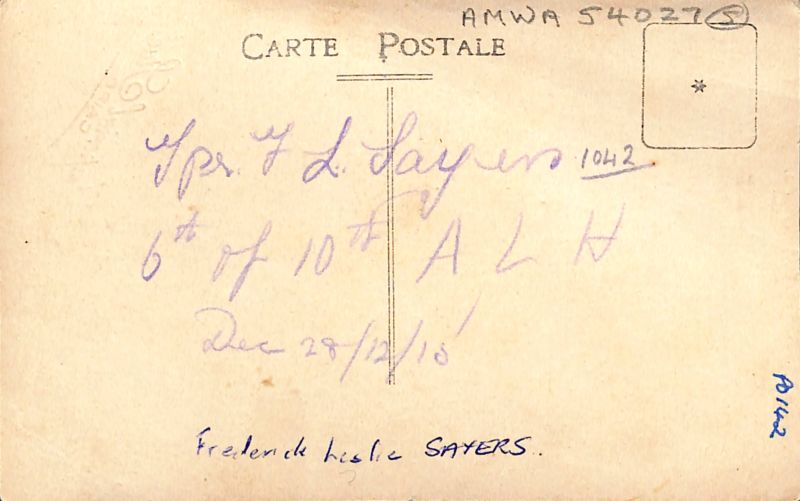 AMWA 54027 (5)
CARTE POSTALE
Tpr. F L. Sayers 1042
6th of 10th A L H
Dec 28/12/15
Frederick Leslie SAYERS.